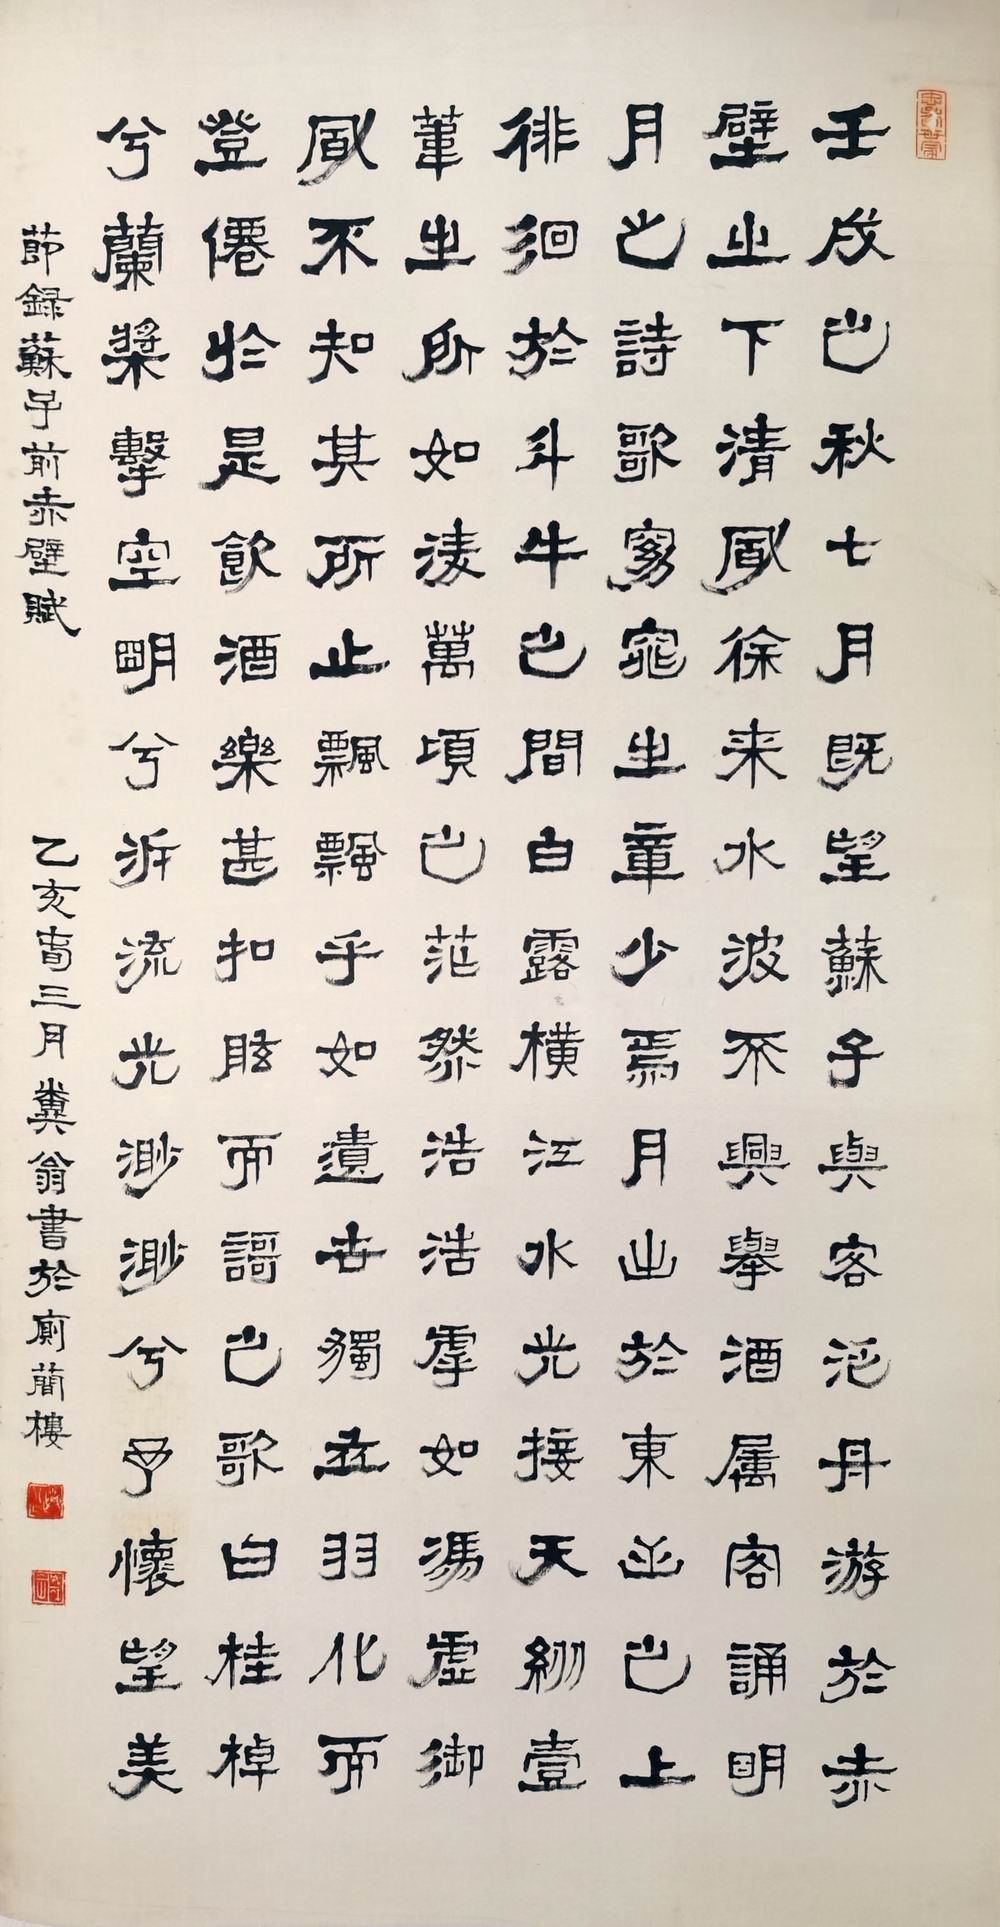 壬戌之秋七月既望蘇子與客泛舟游於赤
壁之下清風徐来水波不興舉酒属客誦明
月之詩歌窈窕之章少焉月出於東山之上
徘徊於斗牛之間白露橫江水光接天縱壹
葦之所如淩萬頃之茫然浩浩虖如馮虛御
風不知其所止飄飄乎如遺世獨立羽化而
登僊於是飲酒樂甚扣舷而謌之歌曰桂棹
兮蘭槳擊空明兮泝流光渺渺兮予懷望美
節錄蘇子前赤壁賦
乙亥春三月糞翁書於廁簡樓